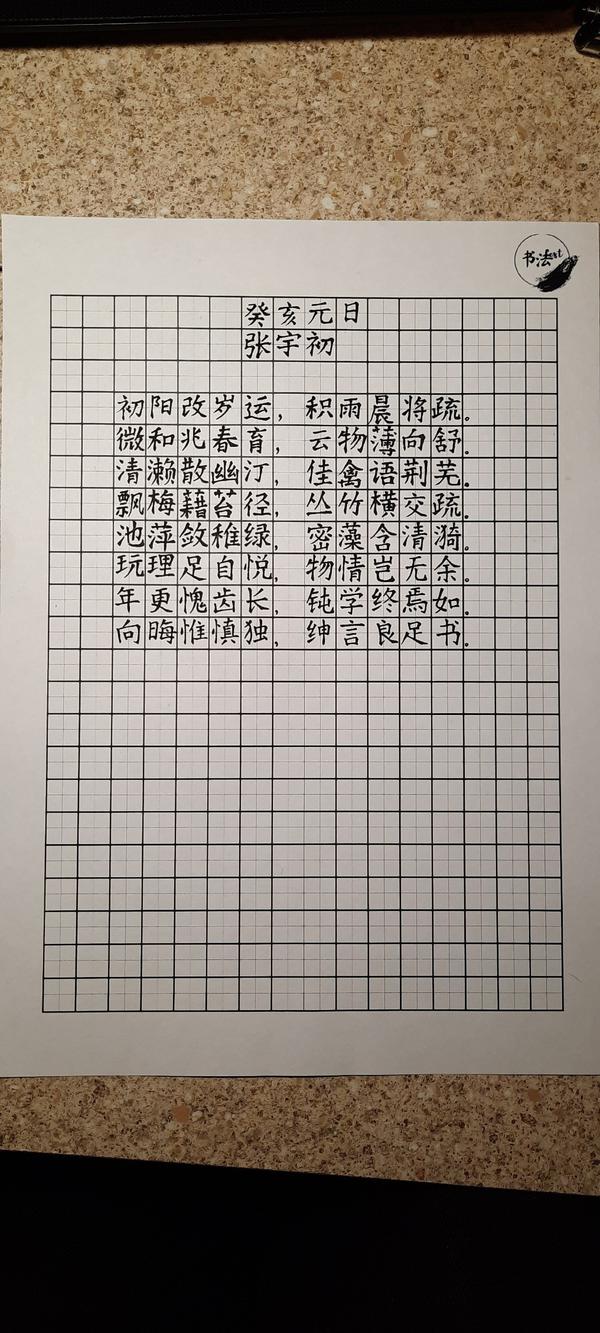 书法art
癸亥元日
张宇初
初阳改岁运，积雨晨将疏。
微和兆春育，云物薄向舒。
清濑散幽汀，佳禽语荆芜。
飘梅藉苔径，丛竹横交疏。
池萍敛稚绿，密藻含清漪。
玩理足自悦，物情岂无余。
年更愧齿长，钝学终焉如。
向晦惟慎独，绅言良足书。